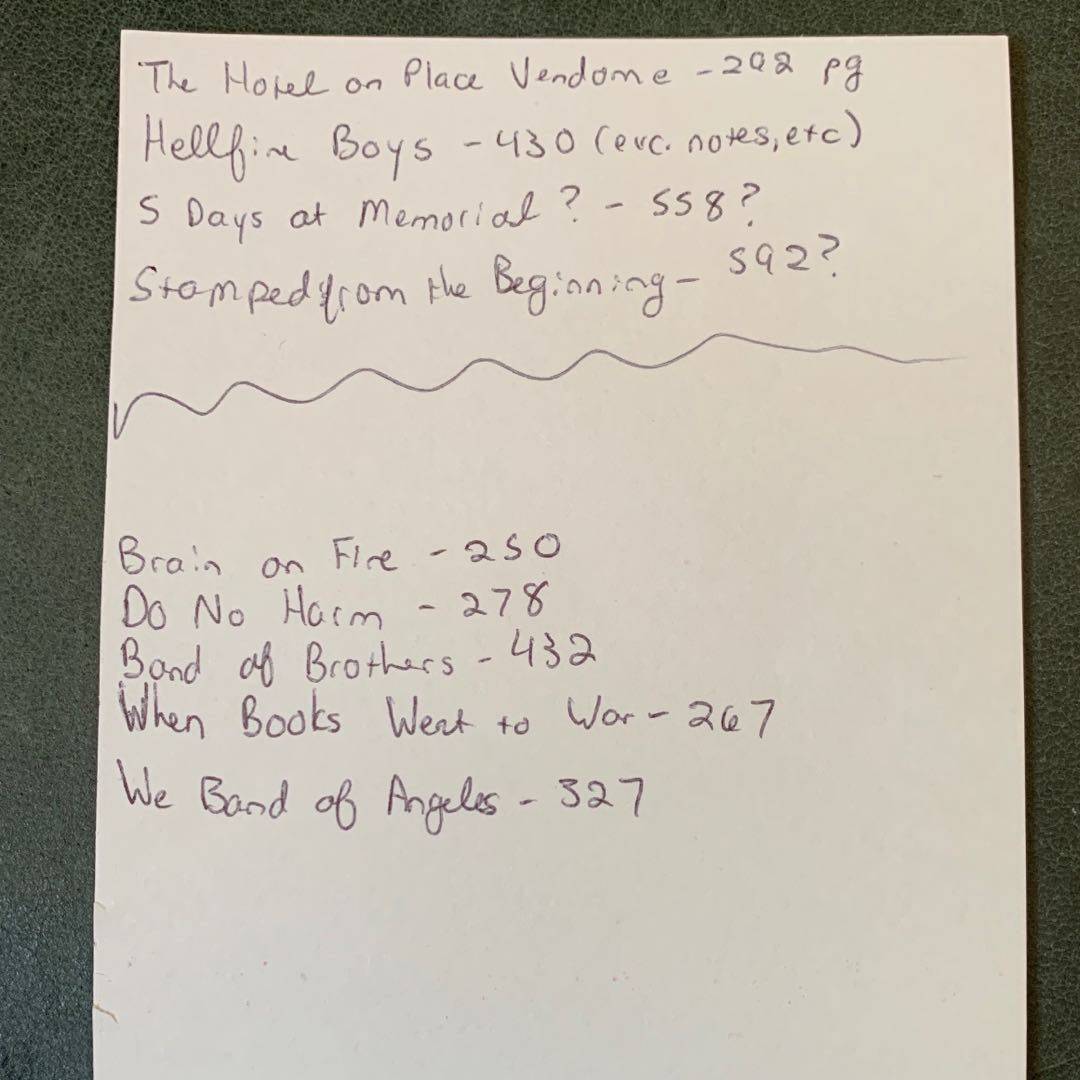 The Hotel on Place Vendome - 292 pg
Hellfire Boys - 430 (exc. notes, etc)
5 Days at Memorial ? - 558?
Stamped from the Beginning - 592?
Brain on Fire - 250
Do No Harm - 278
Band of Brothers - 432
When Books Went to War - 267
We Band of Angels - 327